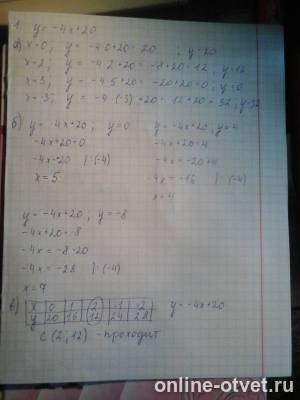 1. y = -4x+20
а) x=0; y = -4·0+20 = 20 ; y=20
x=2; y = -4·2+20 = -8+20=12; y=12
x=5; y = -4·5+20 = -20+20=0; y=0
x=-3; y = -4·(-3)+20 = 12+20=32; y=32
б) y=-4x+20; y=0
-4x+20=0
-4x=-20 |:(-4)
x=5
y=-4x+20; y=4
-4x+20=4
-4x=-20+4
-4x=-16 |:(-4)
x=4
y=-4x+20; y=-8
-4x+20=-8
-4x=-8-20
-4x=-28 |:(-4)
x=7
в) x 0 1 2 -1 -2 y=-4x+20
y 20 16 12 24 28
C(2;12) - проходит
online-otvet.ru